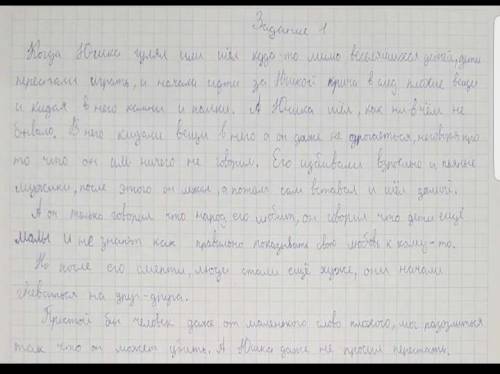 Задание 1
Когда Юшка гулял или шёл куда то мимо веселящихся детей, дети
перестали играть, и начали идти за Юшкой крича в след плохие вещи
и кидая в него камни и палки. А Юшка шёл, как ни в чём не
бывало. В него кидали вещи в него а он даже не
то что он им ничего не говорил. Его избивали взрослые и пьяные
мужики, после этого он лежал, а потом сам вставал и шёл домой.
А он только говорил что народ его любит, он говорил что дети ещё
малы и не знают как правильно показывать свою любовь к кому-то.
Но после его смерти, люди стали ещё хуже, они начали
на друг-друга.
Простой бы человек даже от маленького слово плохого, мог разозлиться
так что он может убить. А Юшка даже не просил перестать.